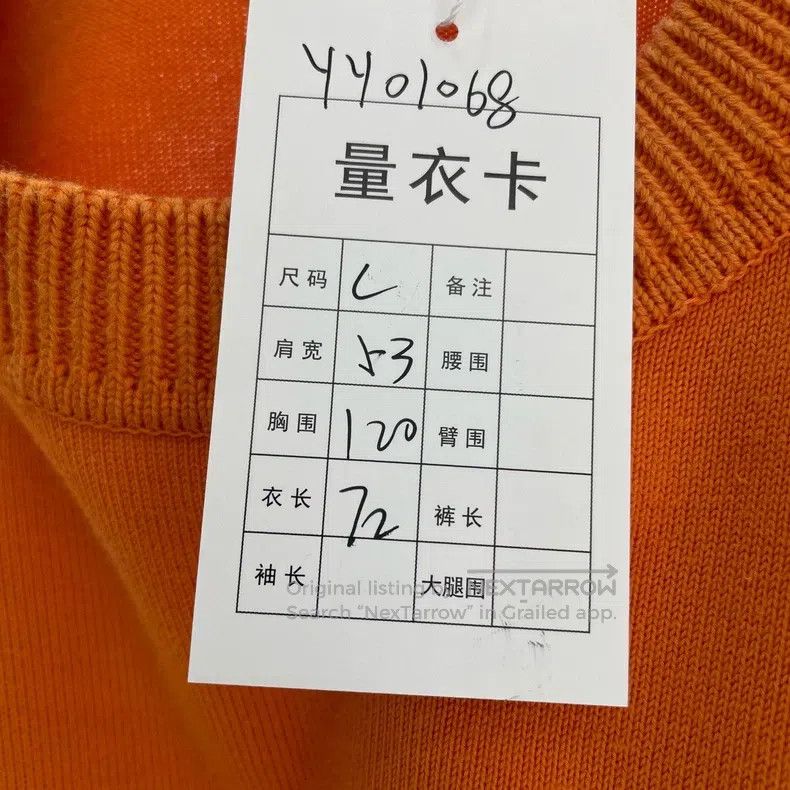 YY01068
量衣卡
尺码 L 备注
肩宽 53 腰围
胸围 120 臂围
衣长 72 裤长
袖长 大腿围
Original listing on NEXTARROW
Search "NexTarrow" in Grailed app.